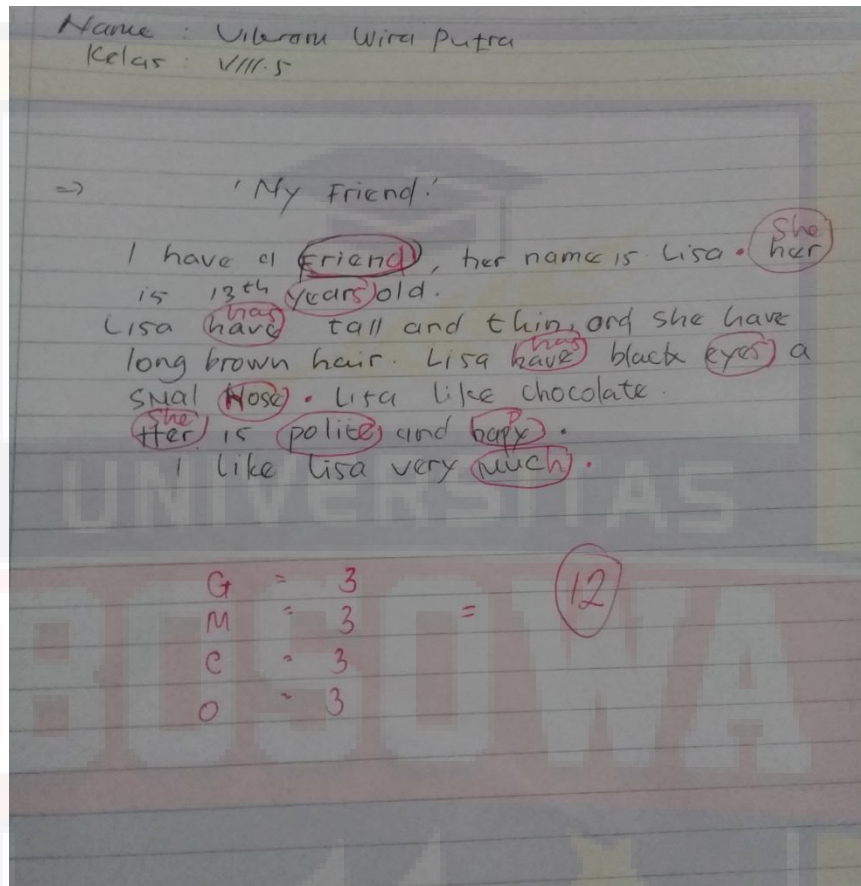 Name : Vikram Wira Putra
Kelas : VIII.5
=> 'My Friend.'
I have a friend, her name is Lisa. her
She
is 13th years old.
Lisa have tall and thin, and she have
has
long brown hair. Lisa have black eyes a
has
smal Nose. Lisa like chocolate.
Her is polite and hapy.
She p
I like Lisa very much.
UNIVERSITAS
BOSOWA
G = 3
M = 3 = 12
C = 3
O = 3